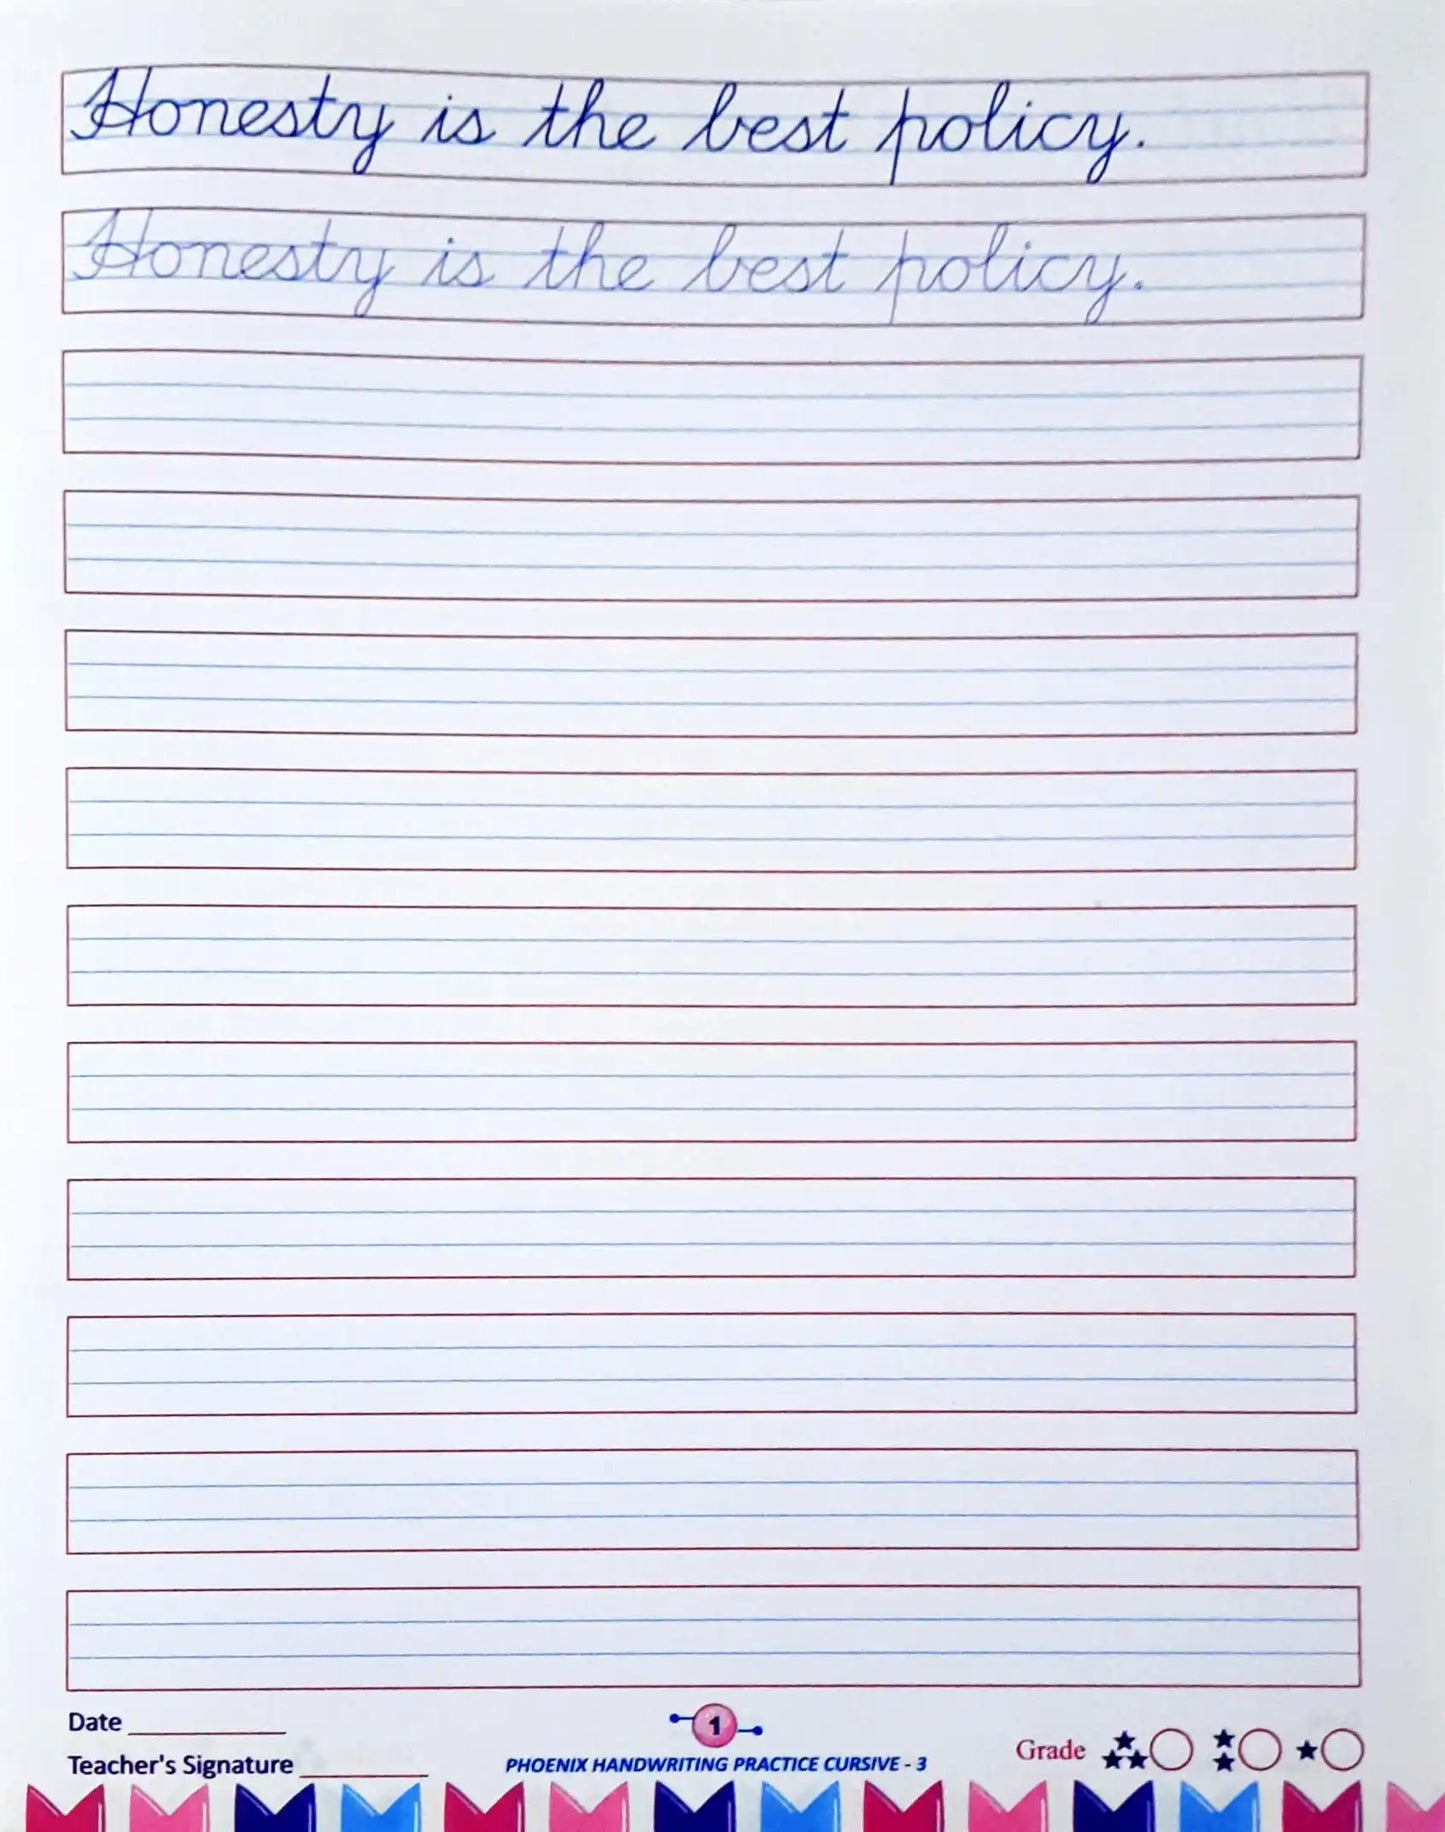 Honesty is the best policy.
Honesty is the best policy.
Date
Teacher's Signature
1
PHOENIX HANDWRITING PRACTICE CURSIVE - 3
Grade